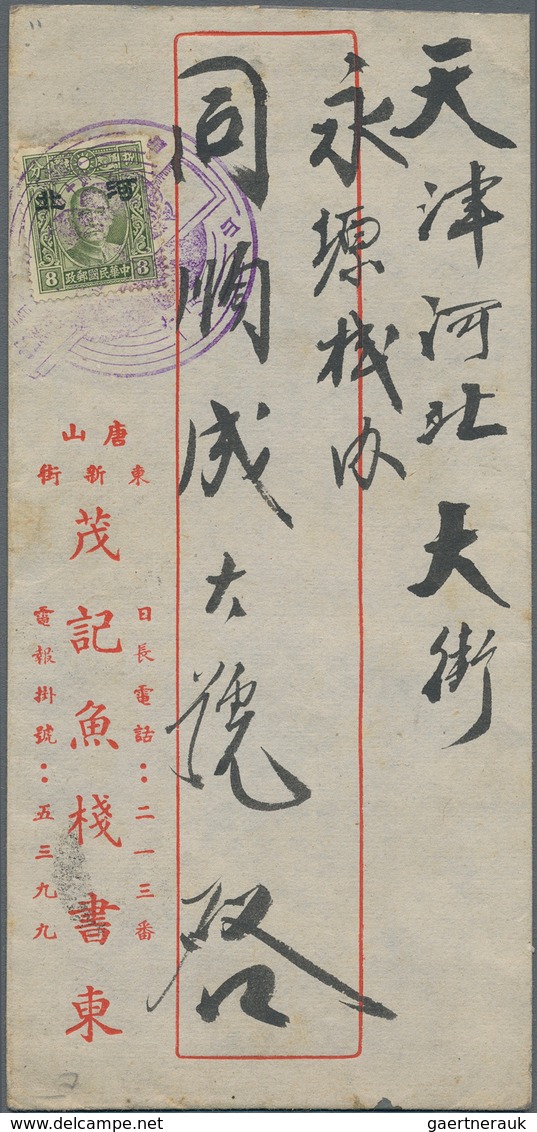 天津河北大街
永塬棧内
同順成大號啓
分捌
河北
8 中華民國郵政 8
唐山
東新街
茂記魚棧書柬
日長電話：二一三番
電報掛號：五三九九
gaertnerauk